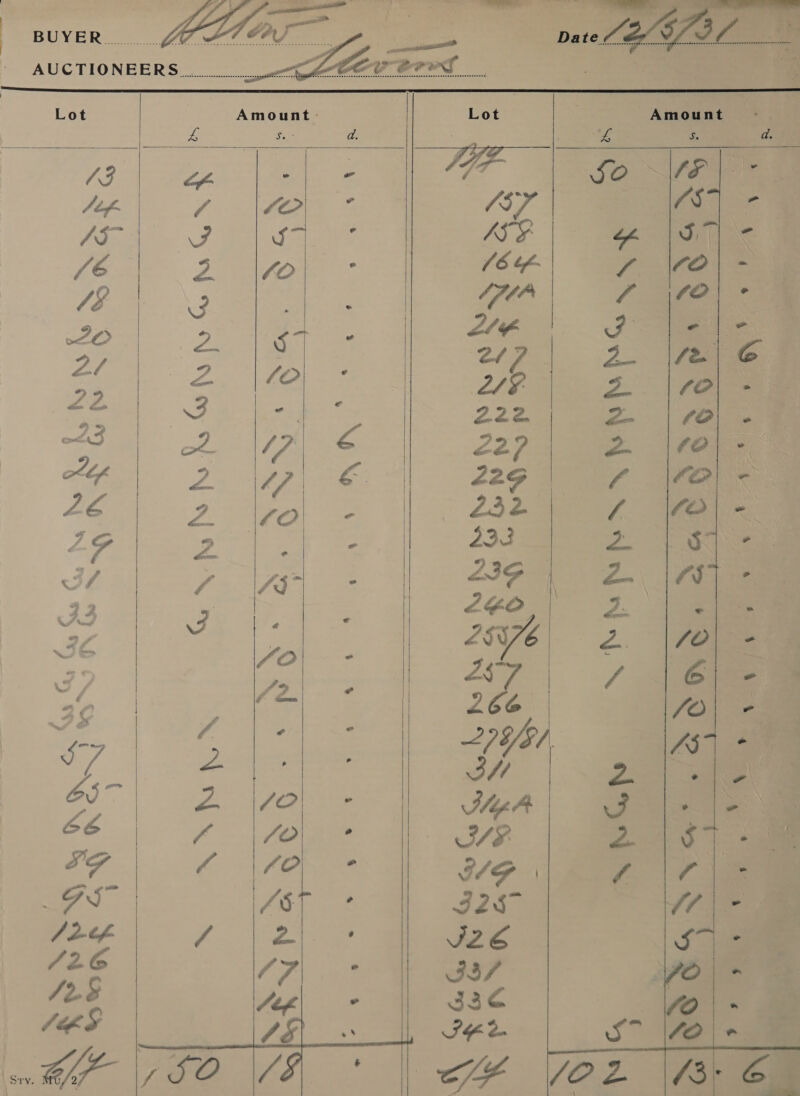 BUYER Allen Date 12/5/31
AUCTIONEERS Stevens
Lot Amount Lot Amount
£ s. d. £ s. d.
13 4 - -
14 1 10 -
15 3 5 -
16 2 10 -
18 3 - -
20 2 5 -
21 2 10 -
22 3 - -
23 2 17 6
24 2 17 6
26 2 10 -
29 2 - -
31 1 15 -
33 3 - -
36 10 -
37 12 -
38 1 - -
57 2 - -
65 2 10 -
66 1 10 -
89 1 10 -
95 15 -
124 1 2 -
126 17 -
128 14 -
148 18 -
C/F 50 18 -
B/F 50 18 -
157 15 -
158 4 5 -
164 1 10 -
171A 1 10 -
214 3 - -
217 2 12 6
218 2 10 -
222 2 10 -
227 2 10 -
229 1 10 -
232 1 10 -
233 2 5 -
239 2 15 -
240 2 - -
255/6 2 10 -
257 1 6 -
266 10 -
278/81 15 -
311 2 - -
314A 3 - -
318 2 5 -
319 1 1 -
325 11 -
326 5 -
331 10 -
336 10 -
342 5 10 -
C/F 102 13 6
Sry.